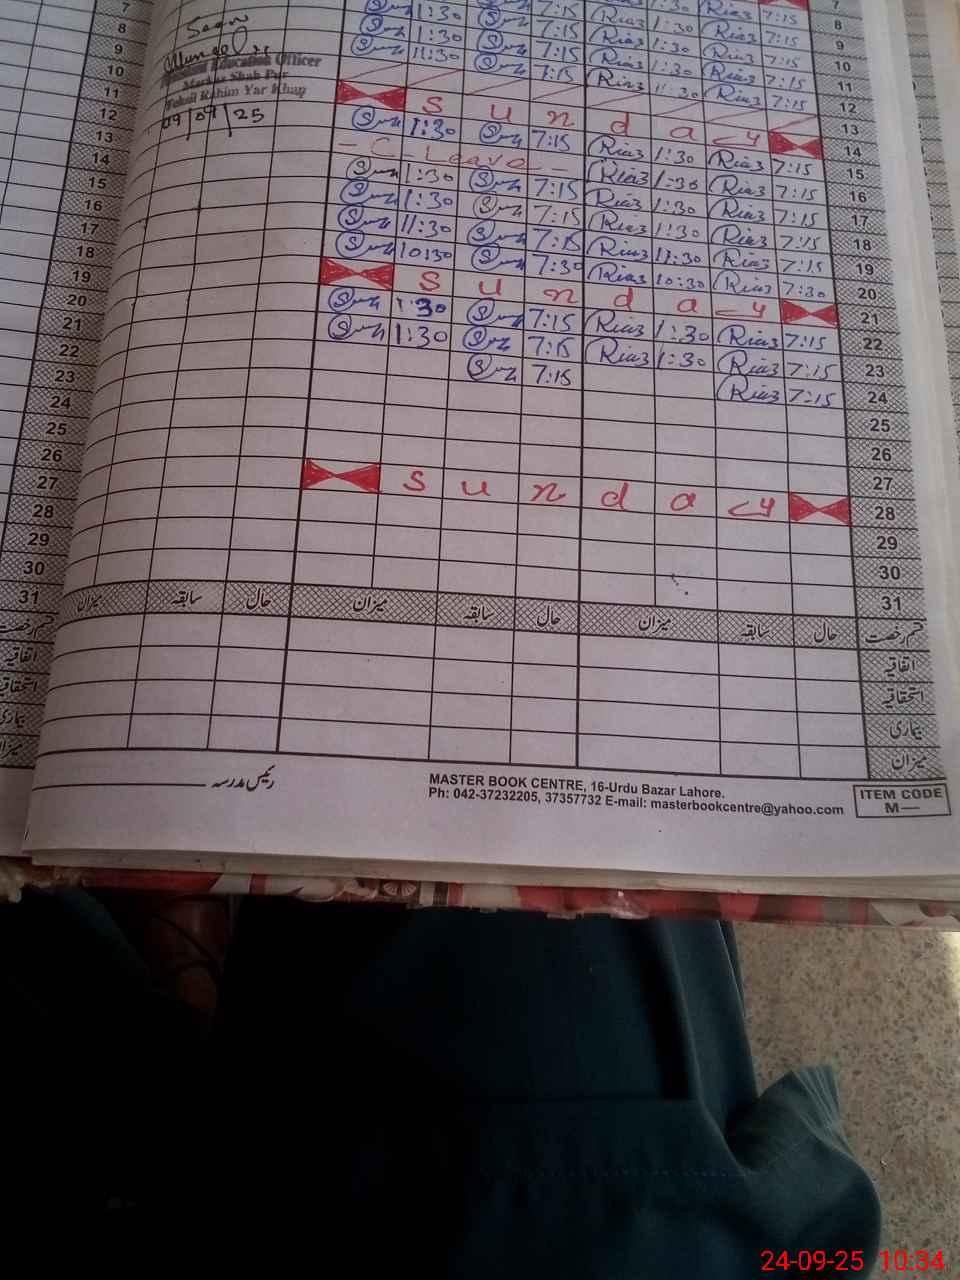 7 1:30 7:15 Riaz 1:30 Riaz 7:15 7
8 1:30 7:15 Riaz 1:30 Riaz 7:15 8
9 11:30 7:15 Riaz 1:30 Riaz 7:15 9
10 7:15 Riaz 11:30 Riaz 7:15 10
11 11
12 S u n d a y 12
13 1:30 7:15 Riaz 1:30 Riaz 7:15 13
14 - C - Leave - - Riaz 1:30 Riaz 7:15 14
15 1:30 7:15 Riaz 1:30 Riaz 7:15 15
16 1:30 7:15 Riaz 1:30 Riaz 7:15 16
17 11:30 7:15 Riaz 11:30 Riaz 7:15 17
18 10:30 7:30 Riaz 10:30 Riaz 7:30 18
19 S u n d a y 19
20 1:30 7:15 Riaz 1:30 Riaz 7:15 20
21 1:30 7:15 Riaz 1:30 Riaz 7:15 21
22 7:15 Riaz 7:15 22
23 23
24 24
25 25
26 26
27 S u n d a y 27
28 28
29 29
30 30
31 31
Education Officer
Markaz Shah Pur
Tehsil Rahim Yar Khan
09/09/25
میزان سابقہ حال میزان سابقہ حال میزان سابقہ حال قسم رخصت
اتفاقیہ
استحقاقیہ
بیماری
میزان
رئیس مدرسہ
MASTER BOOK CENTRE, 16-Urdu Bazar Lahore.
Ph: 042-37232205, 37357732 E-mail: masterbookcentre@yahoo.com
ITEM CODE
M—
24-09-25 10:34